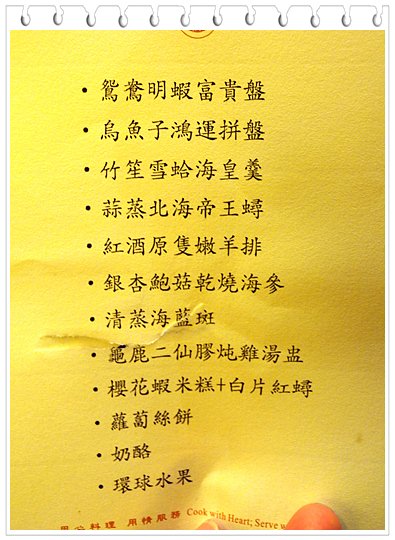 • 鴛鴦明蝦富貴盤
• 烏魚子鴻運拼盤
• 竹笙雪蛤海皇羹
• 蒜蒸北海帝王蟳
• 紅酒原隻嫩羊排
• 銀杏鮑菇乾燒海參
• 清蒸海藍斑
• 龜鹿二仙膠炖雞湯盅
• 櫻花蝦米糕+白片紅蟳
• 蘿蔔絲餅
• 奶酪
• 環球水果
用心料理 用情服務 Cook with Heart; Serve w